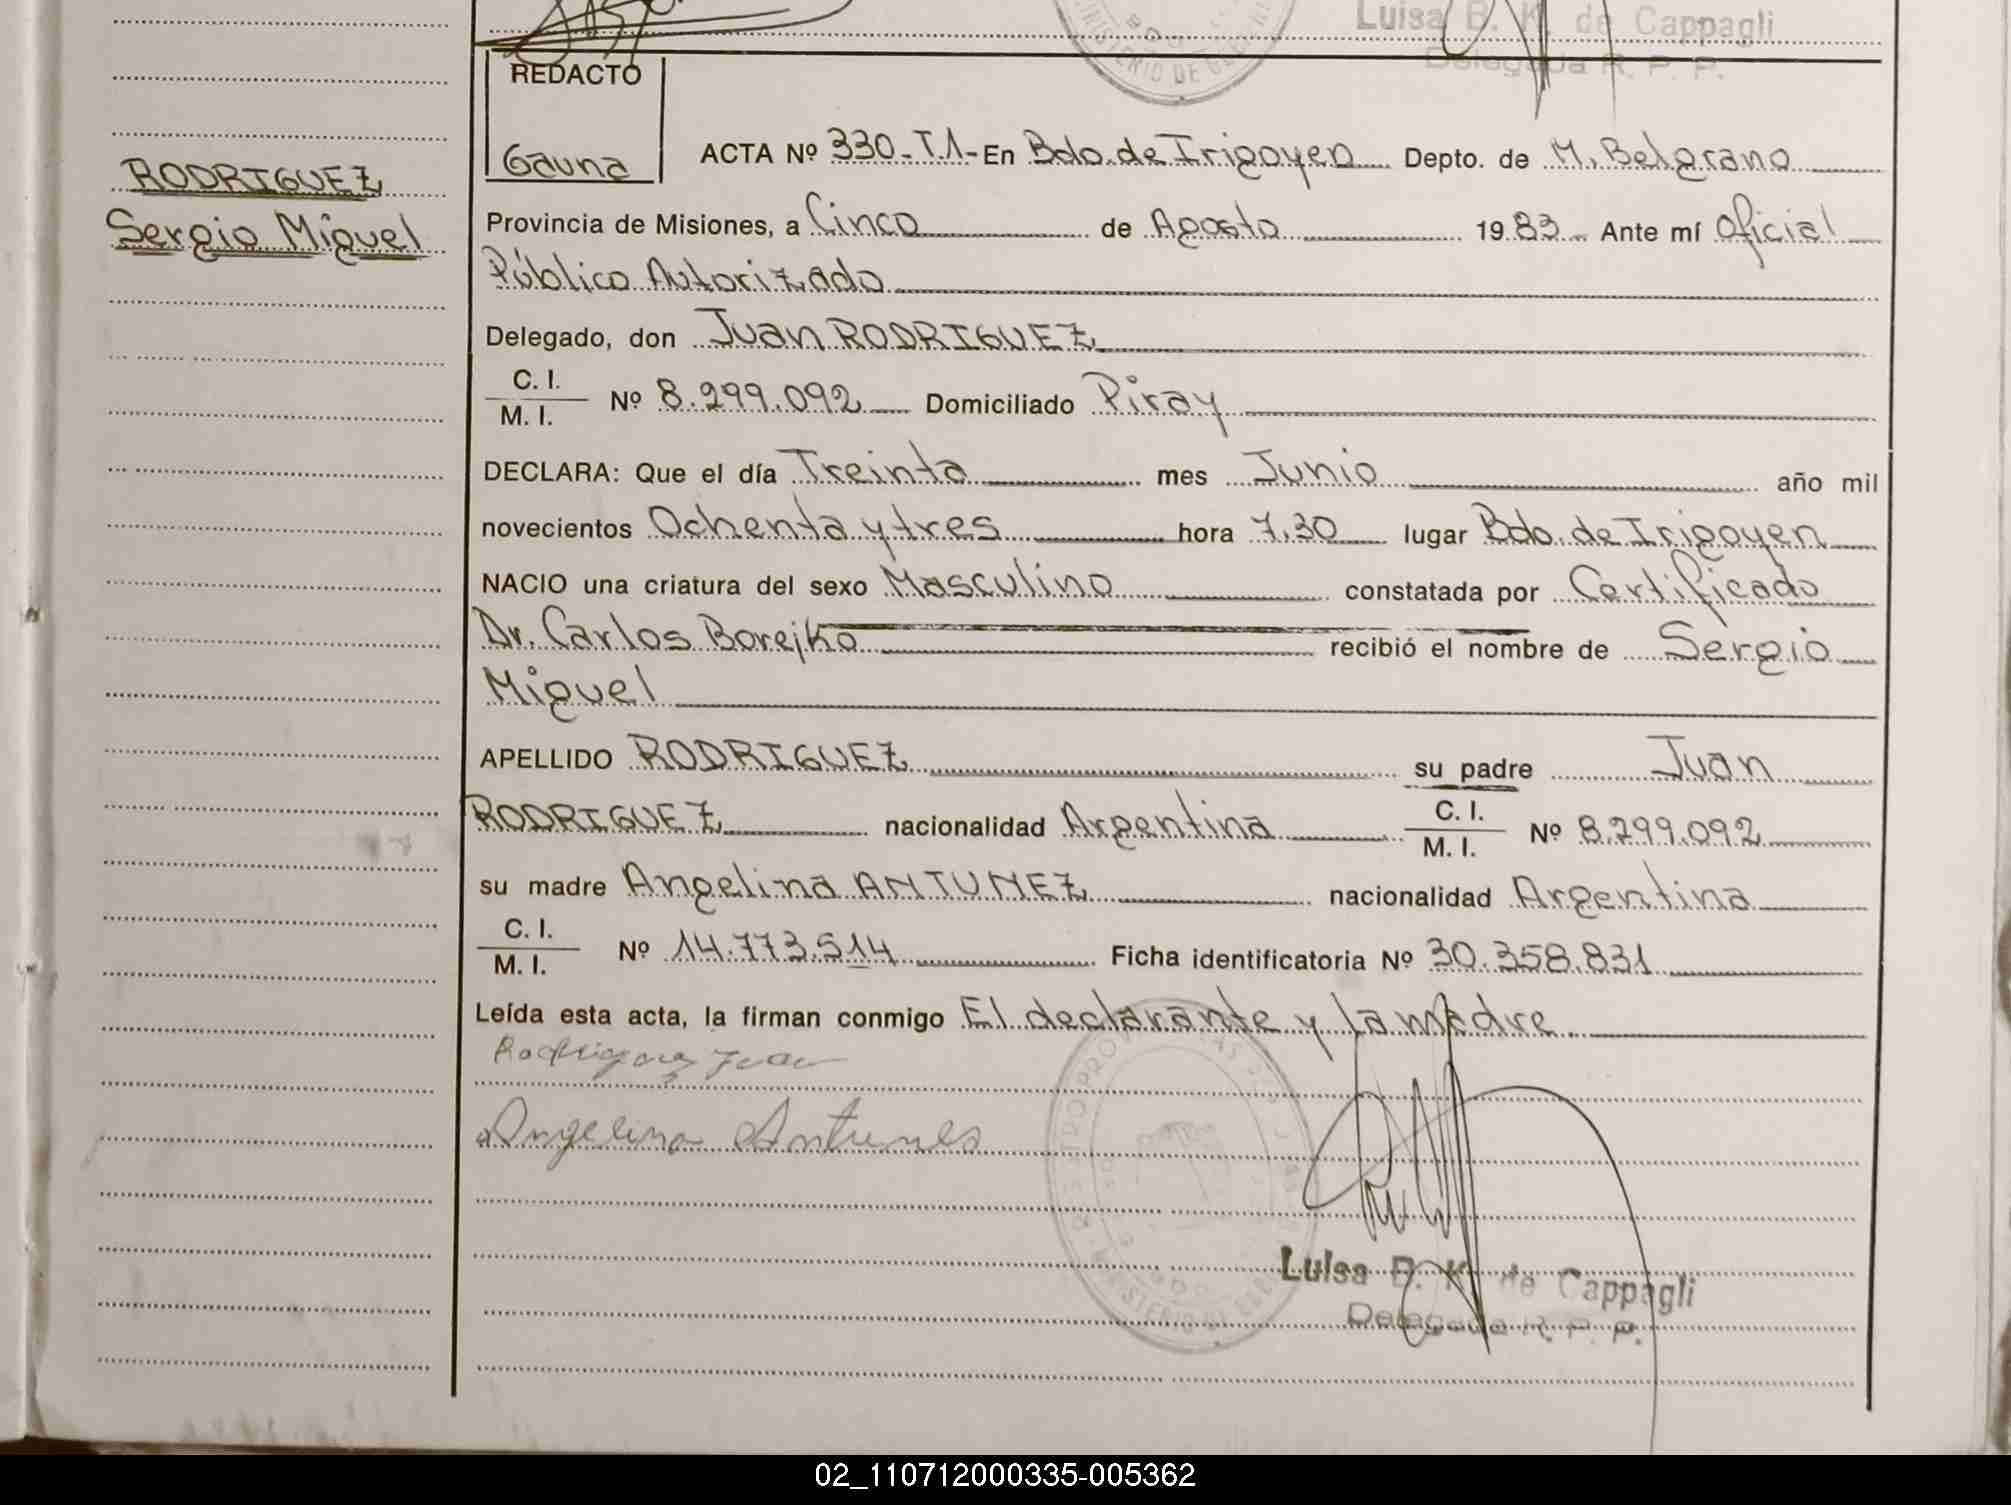 Luisa B. K. de Cappagli
Delegada R. P. P.
REDACTO
Gauna
RODRIGUEZ
Sergio Miguel
ACTA Nº 330-T.1- En Bdo. de Irigoyen Depto. de M. Belgrano
Provincia de Misiones, a Cinco de Agosto 1983 Ante mí Oficial
Público Autorizado
Delegado, don Juan RODRIGUEZ
C. I.
M. I. Nº 8.299.092 Domiciliado Piray
DECLARA: Que el día Treinta mes Junio año mil
novecientos Ochenta y tres hora 7,30 lugar Bdo. de Irigoyen
NACIO una criatura del sexo Masculino constatada por Certificado
Dr. Carlos Borejko recibió el nombre de Sergio
Miguel
APELLIDO RODRIGUEZ su padre Juan
RODRIGUEZ nacionalidad Argentina C. I. M. I. Nº 8.299.092
su madre Angelina ANTUNEZ nacionalidad Argentina
C. I.
M. I. Nº 14.773.514 Ficha identificatoria Nº 30.358.831
Leída esta acta, la firman conmigo El declarante y la madre
Rodriguez Juan
Angelina Antunes
Luisa B. K. de Cappagli
Delegada R. P. P.
02_110712000335-005362